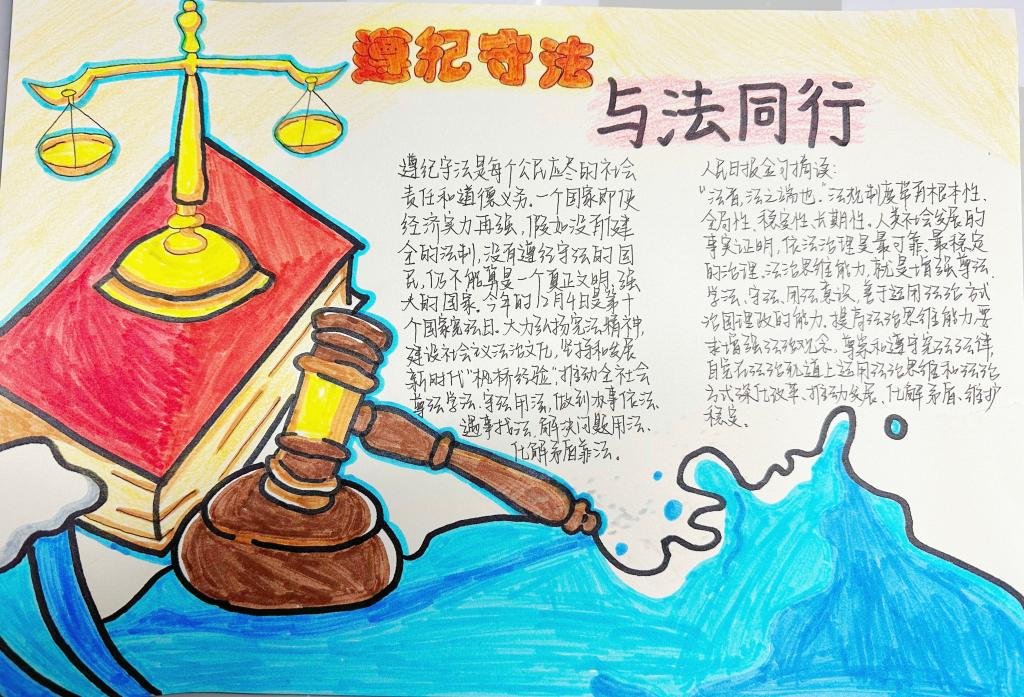 遵纪守法
与法同行
遵纪守法是每个公民应尽的社会
责任和道德义务。一个国家即使
经济实力再强，假如没有健
全的法制，没有遵纪守法的国
民，仍不能算是一个真正文明、强
大的国家。今年的12月4日是第十
个国家宪法日。大力弘扬宪法精神，
建设社会主义法治文化，坚持和发展
新时代“枫桥经验”，推动全社会
尊法学法、守法用法，做到办事依法、
遇事找法、解决问题用法、
化解矛盾靠法。
人民日报金句摘读：
“法者，法之端也。”法规制度带有根本性、
全局性、稳定性、长期性。人类社会发展的
事实证明，依法治理是最可靠、最稳定
的治理。法治思维能力，就是增强尊法、
学法、守法、用法意识，善于运用法治方式
治国理政的能力。提高法治思维能力，要
求增强法治观念，尊崇和遵守宪法法律，
自觉在法治轨道上运用法治思维和法治
方式深化改革、推动发展、化解矛盾、维护
稳定。